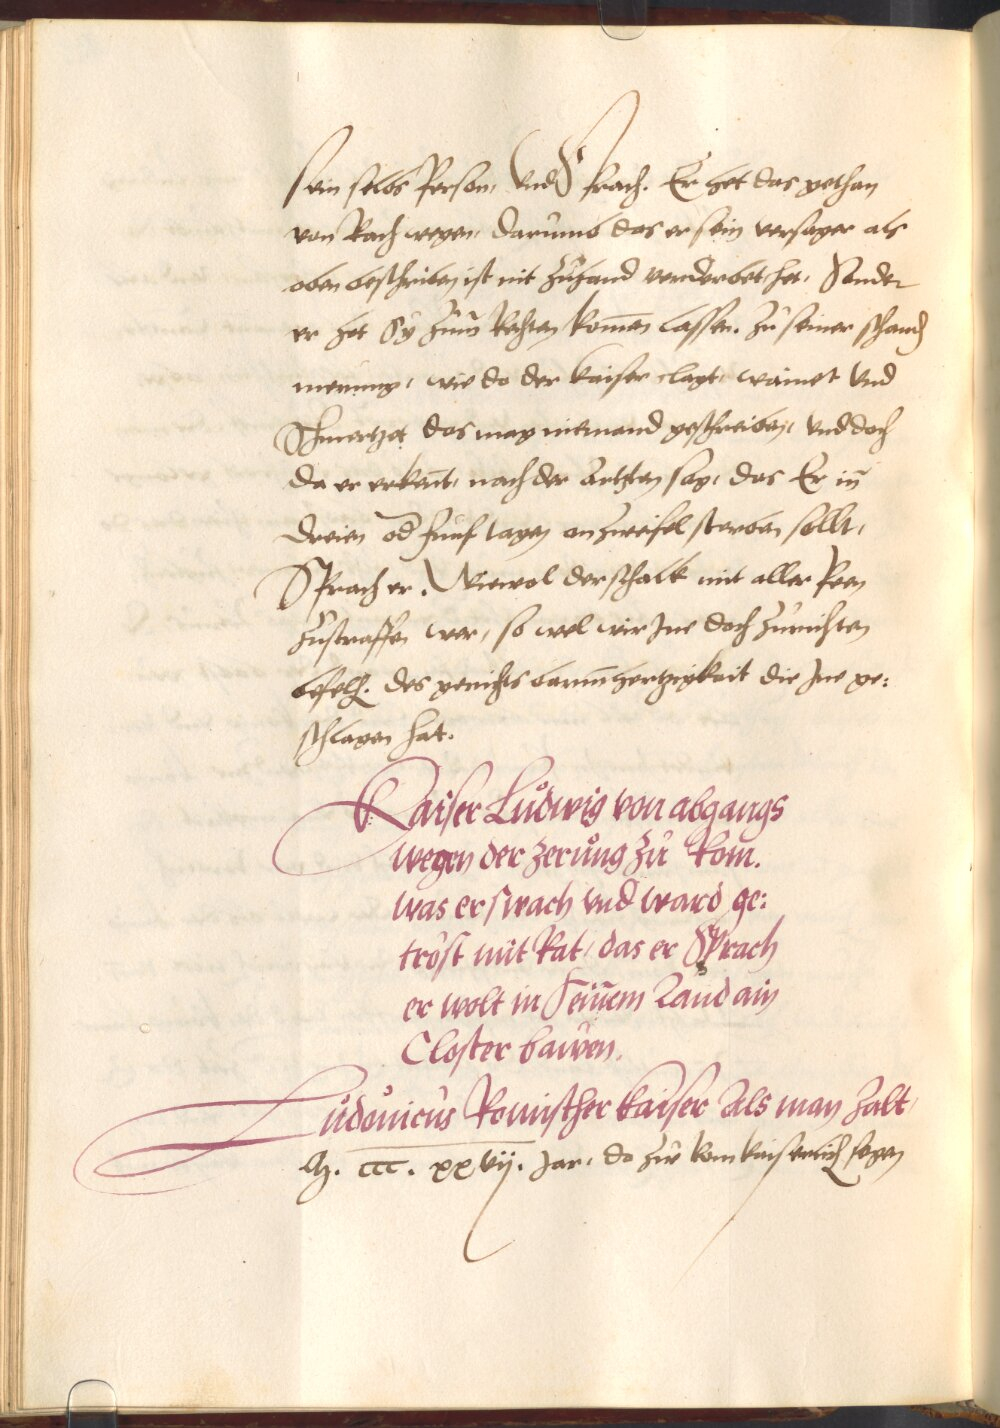 sein selbs Person, Vnd Sprach. Er het das gethan
von Rach wegen, darumb das er sein versager als
oben beschriben ist nit zuhand verderbet het, Sonder
er het Sy zum Rechten komen lassen. Zu seiner schand
merung, wie do der kaiser clagt, wainet vnd
Schmertzet das mag niemand geschreiben, vnd doch
da er erkent, nach der Artzten sag, das Er in
dreien od funf tagen on zweifel sterben sollt,
Sprach er. Wiewol der schalck mit aller Peen
zustraffen wer, so wel wir Jne doch zurichten
befelh. des gerichts barmhertzigkait die Jne ge:
schlagen hat.
Kaiser Ludwig von abgangs
wegen der zerung zu Rom.
was er swach vnd ward ge:
tröst mit Rat, das er Sprach
er wolt in Seinem Land ain
Closter bawen.
Ludouicus Romischer kaiser Als man zalt,
M. ccc. xxvij. Jar, do zu Rom kaiserlich segen